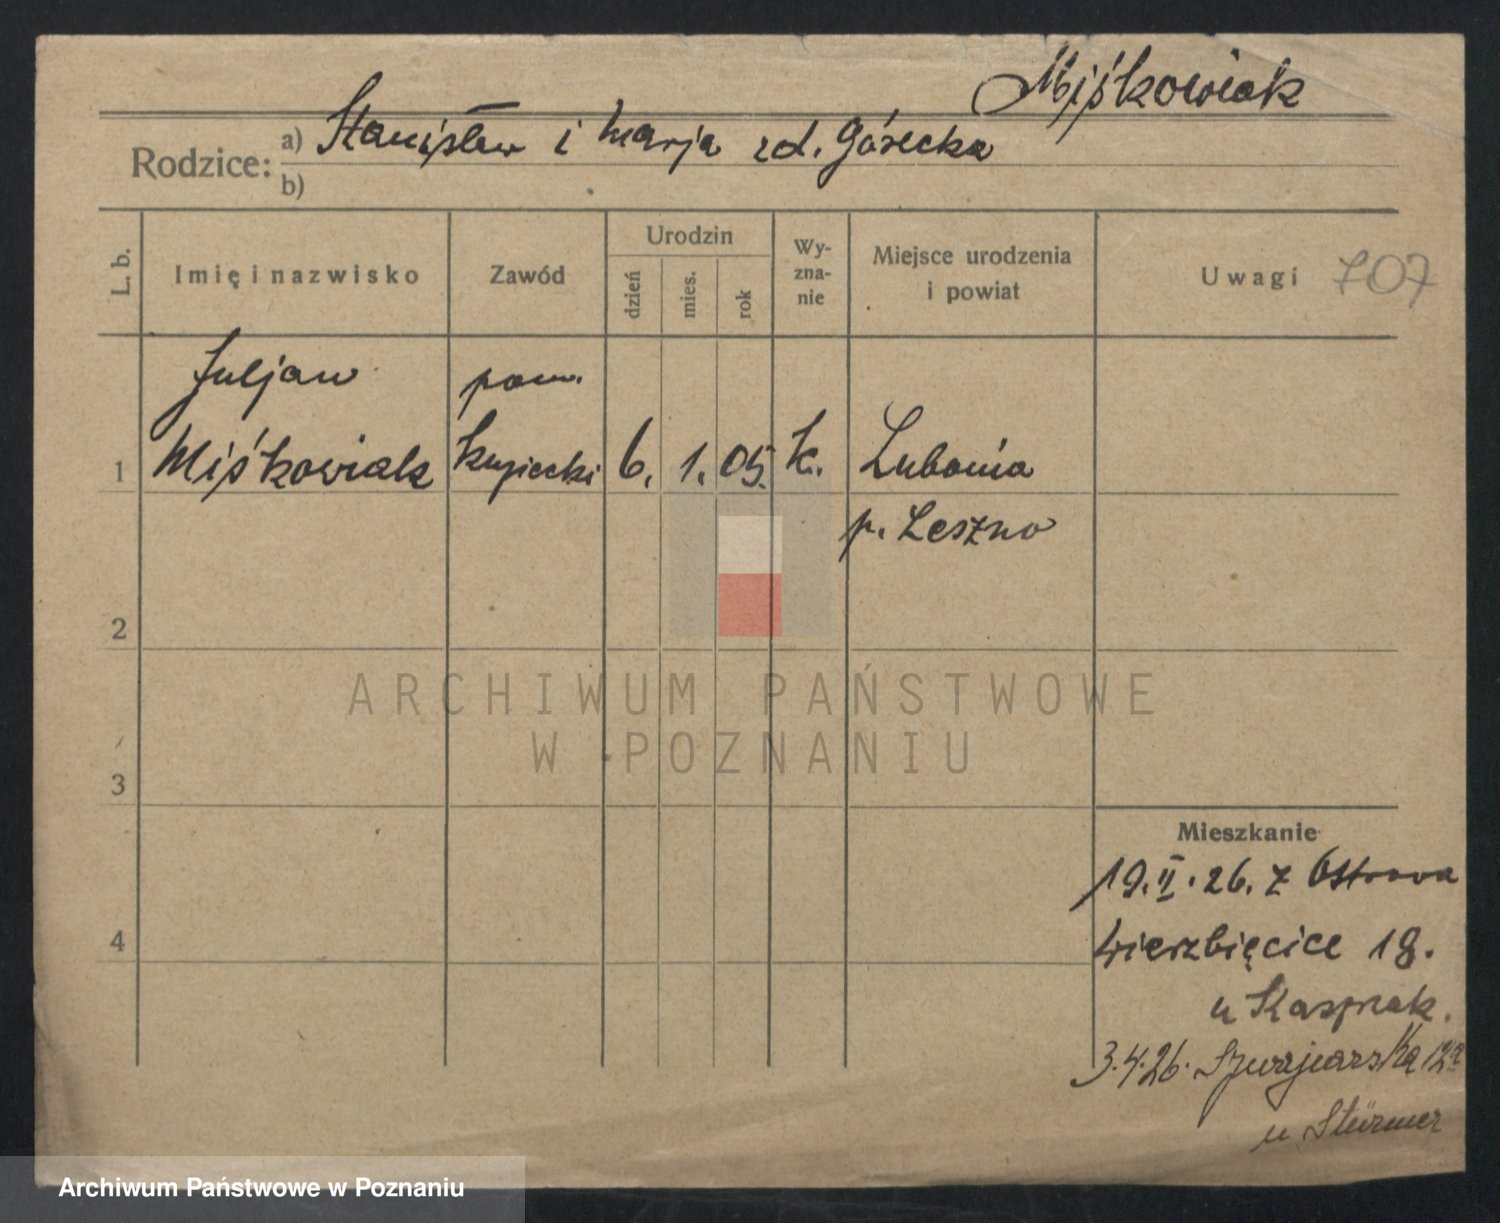 Miśkowiak
Rodzice: a) Stanisław i Marja zd. Górecka
b)
L. b.
Imię i nazwisko
Zawód
Urodzin
dzień
mies.
rok
Wy-
zna-
nie
Miejsce urodzenia
i powiat
Uwagi 707
Juljan pom.
1 Miśkowiak kupiecki 6. 1. 05. k. Lubonia
p. Leszno
2
ARCHIWUM PAŃSTWOWE
W POZNANIU
3
Mieszkanie
19.II.26. z Ostrowa
4
Wierzbięcice 18.
u Kasprzak.
3.4.26. Szwajcarska 12a
u Stürmer
Archiwum Państwowe w Poznaniu